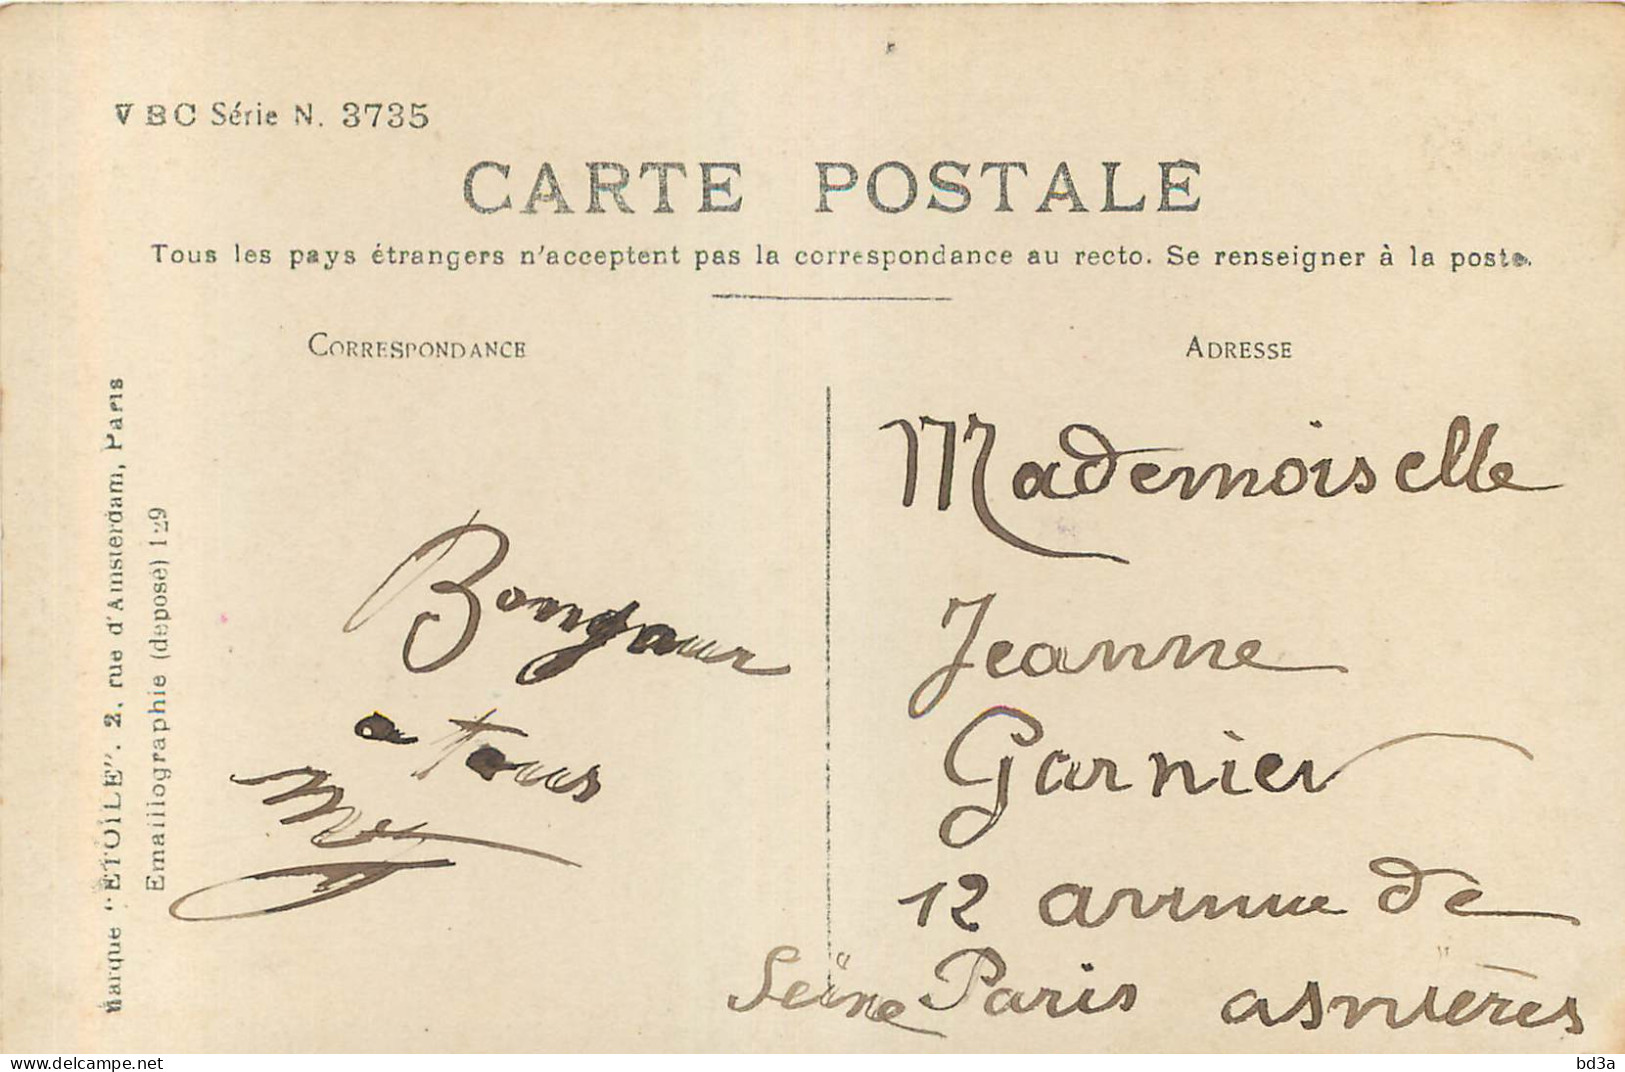 VBC Série N. 3735
CARTE POSTALE
Tous les pays étrangers n'acceptent pas la correspondance au recto. Se renseigner à la poste.
CORRESPONDANCE
ADRESSE
Marque "ETOILE". 2. rue d'Amsterdam, Paris
Emaillographie (déposé) 129
Bonjour
a tous
Mademoiselle
Jeanne
Garnier
12 avenue de
Paris asnières
Seine
bd3a